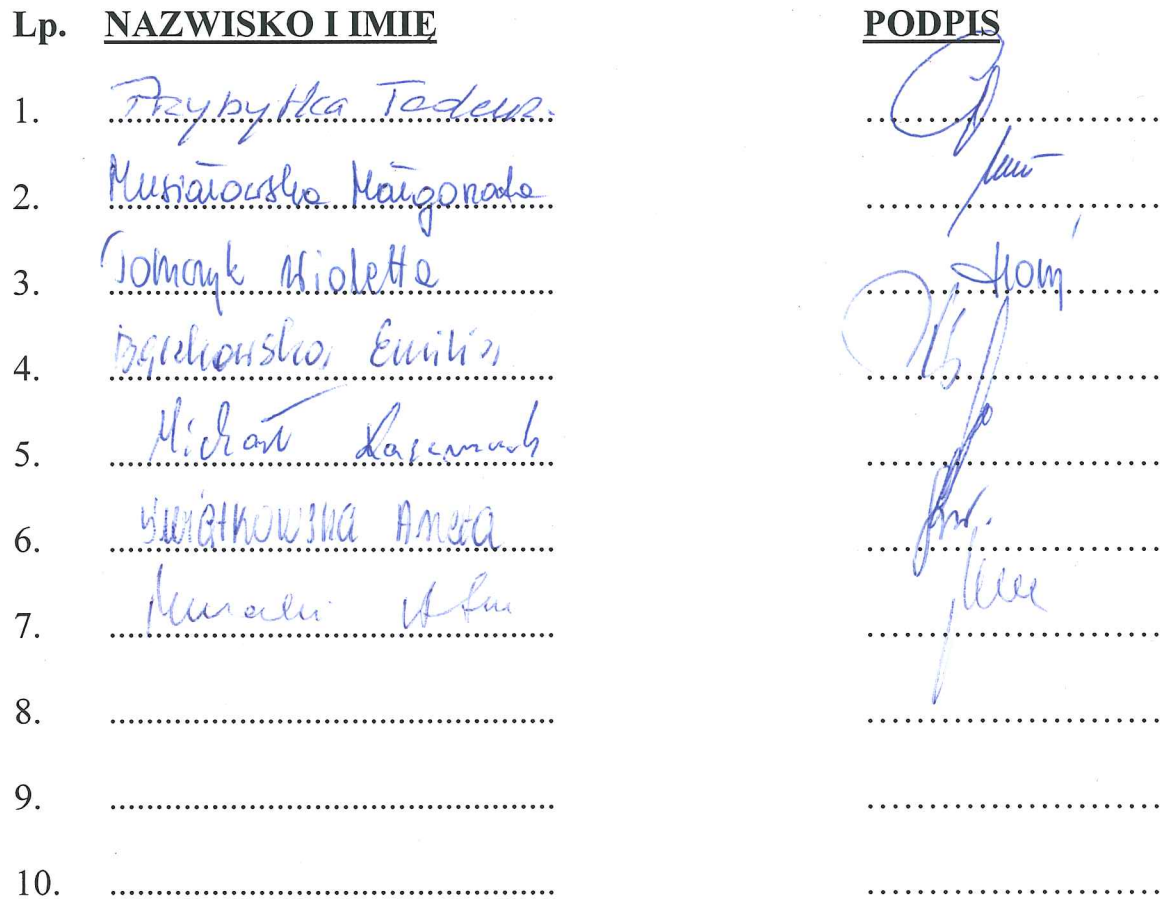 Lp. NAZWISKO I IMIĘ PODPIS
1. Przybyłka Tadeusz
2. Musiałowska Małgorzata
3. Tomczyk Wioletta
4. Bączkowska Emilia
5. Michał Kaczmarek
6. Kwiatkowska Aneta
7.
8.
9.
10.